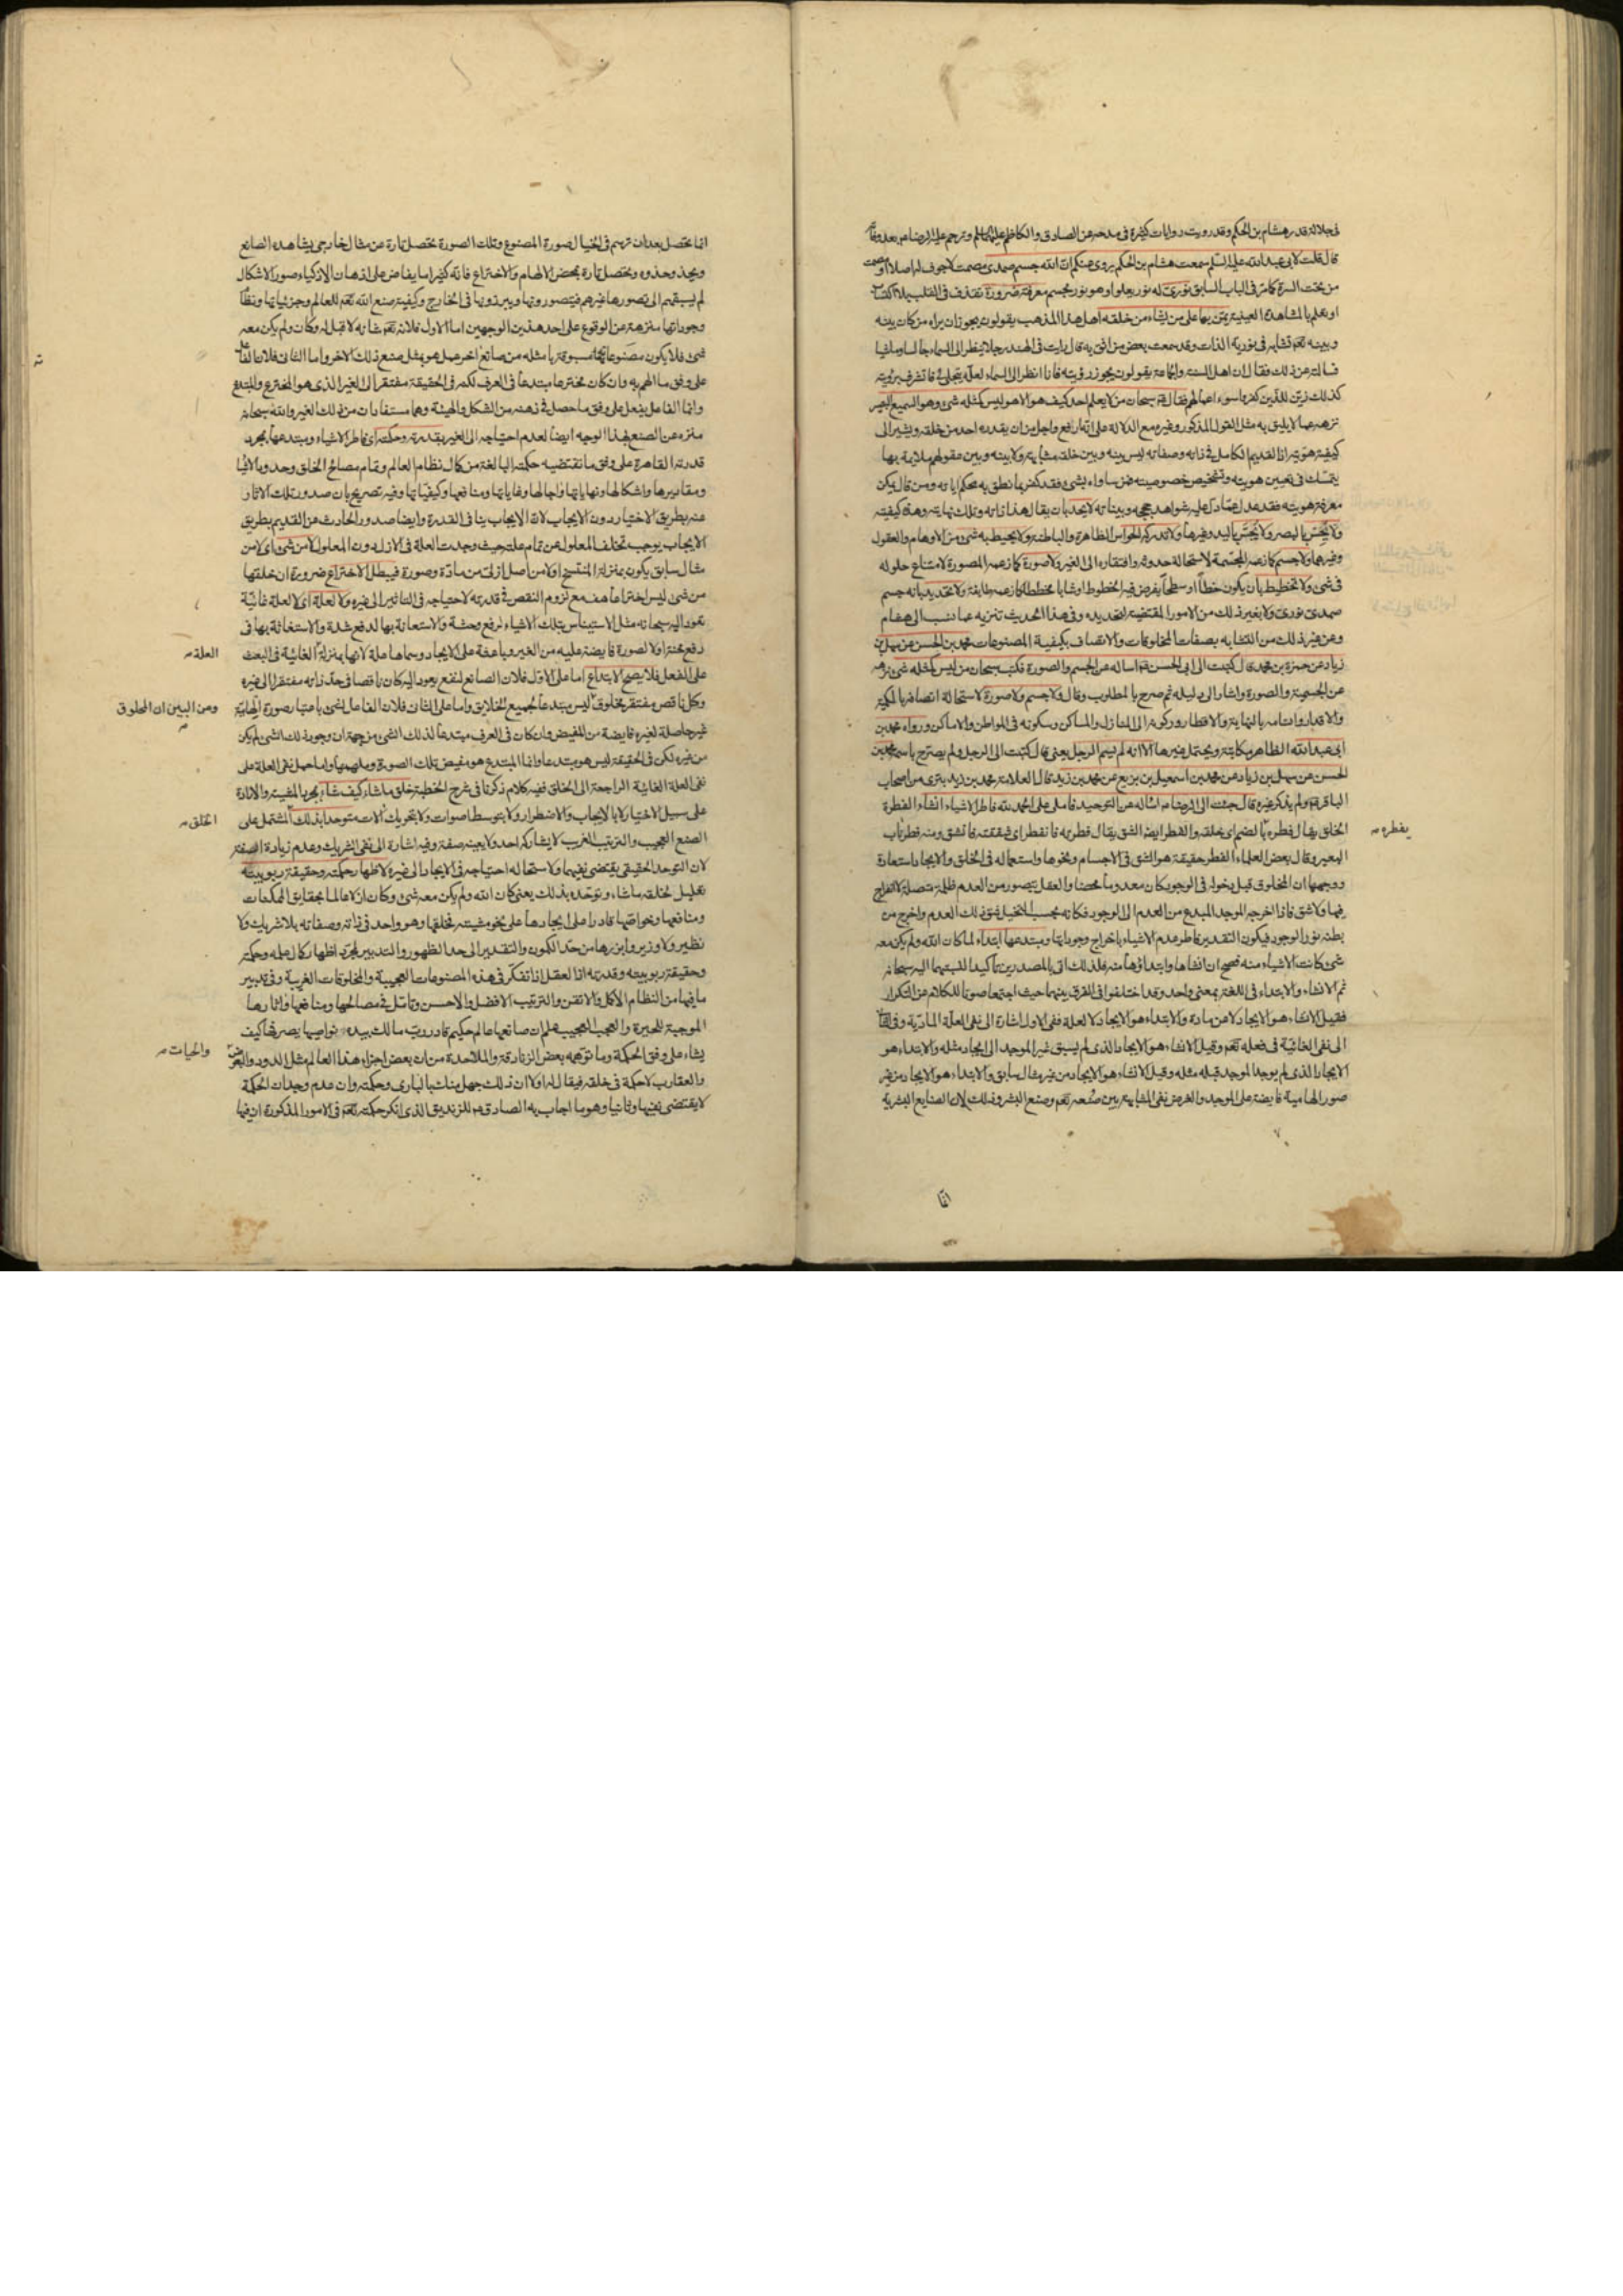 في جلالة قدر هشام بن الحكم وقد رويت روايات كثيرة في مدحه عن الصادق والكاظم عليهما السلم وترحم عليه الرضا بعد وفاته
قال قلت لابي عبد الله عليه السلم سمعت هشام بن الحكم يروي عنكم ان الله جسم صمدي مصمت لا جوف له اصلا او مصمت
من تحت السرة كما مر في الباب السابق نوري له نور يعلو او هو نور مجسم معرفته ضرورة تقذف في القلب بلا اكتساب
او تعلم بالمشاهدة العينية يمن بها على من يشاء من خلقه اهل هذا المذهب يقولون يجوز ان يراه من كان بينه
وبينه تعالى تشابه في نورية الذات وقد سمعت بعض من اثق به قال رايت في الهند رجلا ينظر الى السماء جالسا وماشيا
فسالته عن ذلك فقال ان اهل السنة والجماعة يقولون يجوز رؤيته فانا انظر الى السماء لعله يتجلى لي فاتشرف برؤيته
كذلك زين للذين كفروا سوء اعمالهم فقال سبحان من لا يعلم احد كيف هو الا هو ليس كمثله شيء وهو السميع البصير
نزهه عما لا يليق به مثل القول المذكور وغيره مع الدلالة على انه ارفع واجل من ان يقدره احد من خلقه ويشير الى
كيفية هويته اذ القديم الكامل في ذاته وصفاته ليس بينه وبين خلقه مشابهة ولا بينه وبين عقولهم ملايمة بها
يتمسك في تعيين هويته وتشخيص خصوصيته فمن ساواه بشيء فقد كفر بما نطق به محكم اياته ومن قال يمكن
معرفة هويته فقد عدل عما دل عليه شواهد حججه وبيناته لا يحد بان يقال هذا ذاته وتلك نهايته وهذه كيفيته
ولا يحس بالبصر ولا يجس باليد وغيرها ولا تدركه الحواس الظاهرة والباطنة ولا يحيط به شيء من الاوهام والعقول
وغيرهما ولا جسم كما زعمه المجسمة لاستحالة حدوثه وافتقاره الى الغير ولا صورة كما زعمه المصورة لامتناع حلوله
في شيء ولا تخطيط بان يكون خطا او سطحا يفرض فيه الخطوط او شابا مخططا كما زعمه طايفة ولا تحديد بانه جسم
صمدي نوري ولا بغير ذلك من الامور المقتضية لتحديده وفي هذا الحديث تنزيه عما نسب الى هشام
وعن غير ذلك من التشابه بصفات المخلوقات والاتصاف بكيفية المصنوعات محمد بن الحسن عن سهل بن
زياد عن حمزة بن محمد قال كتبت الى ابي الحسن اساله عن الجسم والصورة فكتب سبحان من ليس كمثله شيء نزهه
عن الجسمية والصورة واشار الى دليله ثم صرح بالمطلوب وقال ولا جسم ولا صورة لاستحالة اتصافه بالحركة
والاقدار واتسامه بالنهاية والاقطار وركونه الى المنازل والمساكن وسكونه في المواطن والاماكن ورواه محمد بن
ابي عبد الله الظاهر بكايته ويحتمل غيرها الا انه لم يسم الرجل يعني قال كتبت الى الرجل ولم يصرح باسمه محمد بن
الحسن عن سهل بن زياد عن محمد بن اسمعيل بن بزيع عن محمد بن زيد قال العلامة محمد بن زيد بتري من اصحاب
الباقر ولم يذكر غيره قال جئت الى الرضا اساله عن التوحيد فاملى علي الحمد لله فاطر الاشياء انشاء الفطرة
الخلق يقال فطره بالضم اي خلقه والفطر ايضا الشق يقال فطرته فانفطر اي شققته فانشق ومنه فطر ناب
يفطره
البعير وقال بعض العلماء الفطر حقيقة هو الشق في الاجسام ونحوها واستعماله في الخلق والايجاد استعارة
ووجهها ان المخلوق قبل دخوله في الوجود كان معدوما محضا والعقل يتصور من العدم ظلمة متصلة لا انفراج
فيها ولا شق فاذا اخرجه الموجد المبدع من العدم الى الوجود فكانه بحسب التخيل شق ذلك العدم واخرج من
بطنه نور الوجود فيكون التقدير فاطر عدم الاشياء باخراج وجوداتها ومبتدعها ابتداء لما كان الله ولم يكن معه
شيء كانت الاشياء منه فصح ان انشاها وابتداؤها منه فلذلك اتى بالمصدرين تأكيدا لنسبتهما اليه سبحانه
ثم الانشاء والابتداء في اللغة بمعنى واحد وقد اختلفوا في الفرق بينهما حيث اجتمعا صونا للكلام عن التكرار
فقيل الانشاء هو الايجاد لا عن مادة والابتداء هو الايجاد لا لعلة ففي الاول اشارة الى نفي العلة المادية وفي الثاني
الى نفي الغائية في فعله تعالى وقيل الانشاء هو الايجاد الذي لم يسبق غير الموجد الى ايجاد مثله والابتداء هو
الايجاد الذي لم يوجد الموجد قبله مثله وقيل الانشاء هو الايجاد من غير مثال سابق والابتداء هو الايجاد من غير
صور الهامية فايضة على الموجد والغرض نفي المشابهة بين صنعه تعالى وصنع البشر وذلك لان الصنايع البشرية
انما
انما تحصل بعد ان ترسم في الخيال صورة المصنوع وتلك الصورة تحصل تارة عن مثال خارجي يشاهده الصانع
ويحذو حذوه وتحصل تارة بمحض الالهام والاختراع فانه كثيرا ما يفاض على اذهان الاذكياء صور الاشكال
لم يسبقهم الى تصورها غيرهم فيتصورونها ويبرزونها في الخارج وكيفية صنع الله تعالى للعالم وجزئياتها ونظام
وجوداتها منزهة عن الوقوع على احد هذين الوجهين اما الاول فلانه تعالى شانه لا قبل له وكان ولم يكن معه
شيء فلا يكون مصنوعاته مسبوقة بامثلة من صانع اخر عمل هو بمثل صنع ذلك الاخر واما الثاني فلان الفاعل
على وفق ما الهم به وان كان مخترعا مبتدعا في العرف لكنه في الحقيقة مفتقر الى الغير الذي هو المخترع والمبتدع
وانما الفاعل يفعل على وفق ما حصل في ذهنه من الشكل والهيئة وهما مستفادان من ذلك الغير والله سبحانه
منزه عن الصنع بهذا الوجه ايضا لعدم احتياجه الى الغير بقدرته وحكمته اي فاطر الاشياء ومبتدعها بمجرد
قدرته القاهرة على وفق ما تقتضيه حكمته البالغة من كمال نظام العالم وتمام مصالح الخلق وحدود الاشياء
ومقاديرها واشكالها ونهاياتها واجالها وغاياتها ومنافعها وكيفياتها وفيه تصريح بان صدور تلك الاثار
عنه بطريق الاختيار دون الايجاب لان الايجاب ينافي القدرة وايضا صدور الحادث عن القديم بطريق
الايجاب يوجب تخلف المعلول عن تمام علته حيث وجدت العلة في الازل دون المعلول لا من شيء اي لا من
مثال سابق يكون بمنزلة المنتسخ او لا من اصل ازلي من مادة وصورة فيبطل الاختراع ضرورة ان خلقتها
من شيء ليس اختراعا هف مع لزوم النقص في قدرته لاحتياجه في التاثير الى غيره ولا لعلة اي لا لعلة غائية
تعود اليه سبحانه مثل الاستيناس بتلك الاشياء لرفع وحشة والاستعانة بها لدفع شدة والاستغاثة بها في
دفع محنة او لا لصورة فايضة عليه من الغير وباعثة على الايجاد وسماها علة لانها بمنزلة الغائية في البعث
العلة
على الفعل فلا يصح الابتداع اما على الاول فلان الصانع لنفع يعود اليه كان ناقصا في حد ذاته مفتقرا الى غيره
وكل ناقص مفتقر مخلوق ليس مبتدعا لجميع الخلايق واما على الثاني فلان الفاعل لشيء باعتبار صورة الهامية
ومن البين ان المخلوق
غير حاصلة لغيره فايضة من المفيض وان كان في العرف مبتدعا لذلك الشيء من جهة ان وجود ذلك الشيء لم يكن
من غيره لكن في الحقيقة ليس هو مبتدعا وانما المبتدع هو مفيض تلك الصورة وملهمها واما حمل نفي العلة على
نفي العلة الغائية الراجعة الى الخلق ففيه كلام ذكرنا في شرح الخطبة خلق ما شاء كيف شاء بمجرد المشية والارادة
على سبيل الاختيار لا بالايجاب والاضطرار ولا بتوسط اصوات ولا بتحريك الات متوحدا بذلك المشتمل على
الخلق
الصنع العجيب والترتيب الغريب لا يشاركه احد ولا يعينه صفة وفيه اشارة الى نفي الشريك وعدم زيادة الصفة
لان التوحد الحقيقي يقتضي نفيهما ولاستحالة احتياجه في الايجاد الى غيره لاظهار حكمته وحقيقة ربوبيته
تعليل لخلقه ما شاء وتوحده بذلك يعني كان الله ولم يكن معه شيء وكان ازلا عالما بحقايق الممكنات
ومنافعها وخواصها قادرا على ايجادها على نحو مشيته فخلقها وهو واحد في ذاته وصفاته بلا شريك ولا
نظير ولا وزير وابرزها من حد الكون والتقدير الى حد الظهور والتدبير لمجرد اظهار كمال علمه وحكمته
وحقيقة ربوبيته وقدرته اذ العقل اذا تفكر في هذه المصنوعات العجيبة والمخلوقات الغريبة وفي تدبير
ما فيها من النظام الاكمل والاتقن والترتيب الافضل والاحسن وتامل في مصالحها ومنافعها واثارها
الموجبة للحيرة والعجب العجيب علم ان صانعها عالم حكيم قادر رب مالك بيده نواصيها يصرفها كيف
يشاء على وفق الحكمة وما توهمه بعض الزنادقة والملاحدة من ان بعض اجزاء هذا العالم مثل الدود والبعوض
والحيات
والعقارب لا حكمة في خلقه فيقال له اولا ان ذلك جهل منك بالباري وحكمته وان عدم وجدان الحكمة
لا يقتضي نفيها وثانيا وهو ما اجاب به الصادق للزنديق الذي انكر حكمته تعالى في الامور المذكورة ان فيها